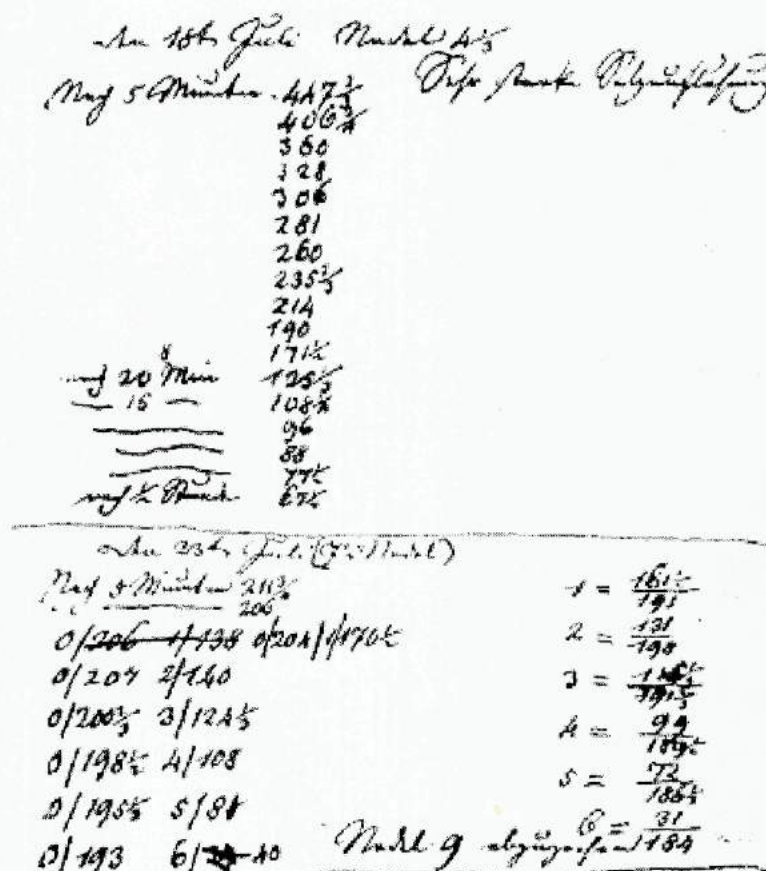 den 18t Juli Nadel 4⅓
Sehr starke Salzauflösung
Nach 5 Minuten 447½
406¾
360
328
306
281
260
235⅔
214
190
171½
nach 20 Min 125⅓
— 15 — 108¾
96
88
77½
nach ½ Stunde 67½
den 23t Juli ( Nadel)
Nach 5 Minuten 211⅔
206
0/206 1/138 0/204/1/170½
0/207 2/140
0/200⅔ 3/124⅓
0/198½ 4/108
0/195⅓ 5/81
0/193 6/ 40
1 = 161½/191
2 = 131/190
3 =
4 = 99/189½
5 = 72/186½
6 = 31/184
Nadel 9